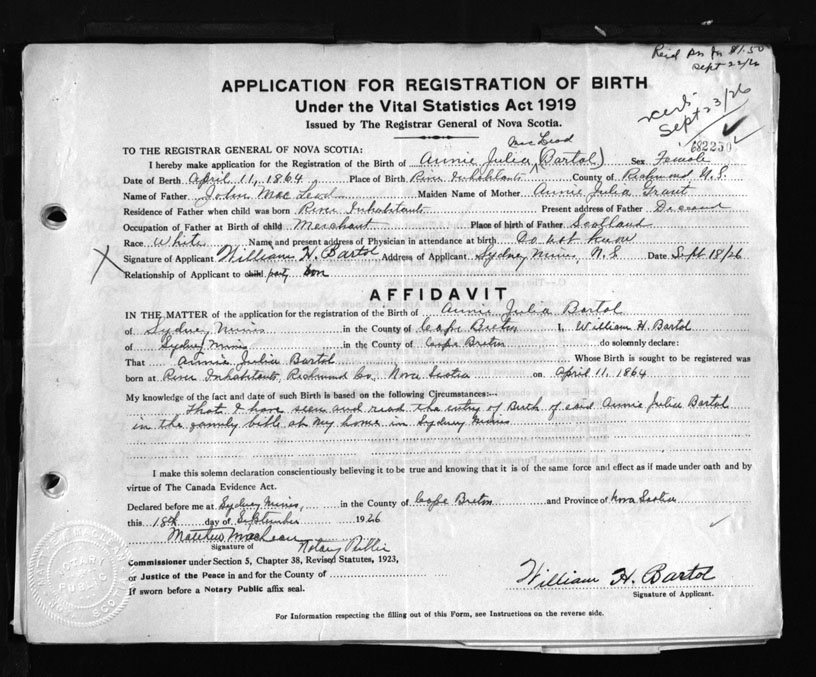 Reid Sept 22/26 $1.50
APPLICATION FOR REGISTRATION OF BIRTH
Under the Vital Statistics Act 1919
Issued by The Registrar General of Nova Scotia.
Sept 23/26
TO THE REGISTRAR GENERAL OF NOVA SCOTIA:
Mac Leod
I hereby make application for the Registration of the Birth of Annie Julia (Bartol) Sex Female
Date of Birth April 11, 1864 Place of Birth River Inhabitants County of Richmond N.S.
Name of Father John Mac Leod Maiden Name of Mother Annie Julia Grant
Residence of Father when child was born River Inhabitants Present address of Father Deceased
Occupation of Father at Birth of child Merchant Place of birth of Father Scotland
Race White Name and present address of Physician in attendance at birth Do not know
X Signature of Applicant William H. Bartol Address of Applicant Sydney Mines, N.S Date Sept 18/26
Relationship of Applicant to child party son
AFFIDAVIT
IN THE MATTER of the application for the registration of the Birth of Annie Julia Bartol
of Sydney Mines in the County of Cape Breton I, William H. Bartol
of Sydney Mines in the County of Cape Breton do solemnly declare:
That Annie Julia Bartol Whose Birth is sought to be registered was
born at River Inhabitants, Richmond Co., Nova Scotia on April 11, 1864
My knowledge of the fact and date of such Birth is based on the following Circumstances:—
That I have seen and read the entry of Birth of said Annie Julia Bartol
in the family bible at my home in Sydney Mines
I make this solemn declaration conscientiously believing it to be true and knowing that it is of the same force and effect as if made under oath and by
virtue of The Canada Evidence Act.
Declared before me at Sydney Mines, in the County of Cape Breton and Province of Nova Scotia
this 18th day of September 1926
Matthew MacLean
Signature of Notary Public
Commissioner under Section 5, Chapter 38, Revised Statutes, 1923,
or Justice of the Peace in and for the County of
If sworn before a Notary Public affix seal.
William H. Bartol
Signature of Applicant.
For Information respecting the filling out of this Form, see Instructions on the reverse side.